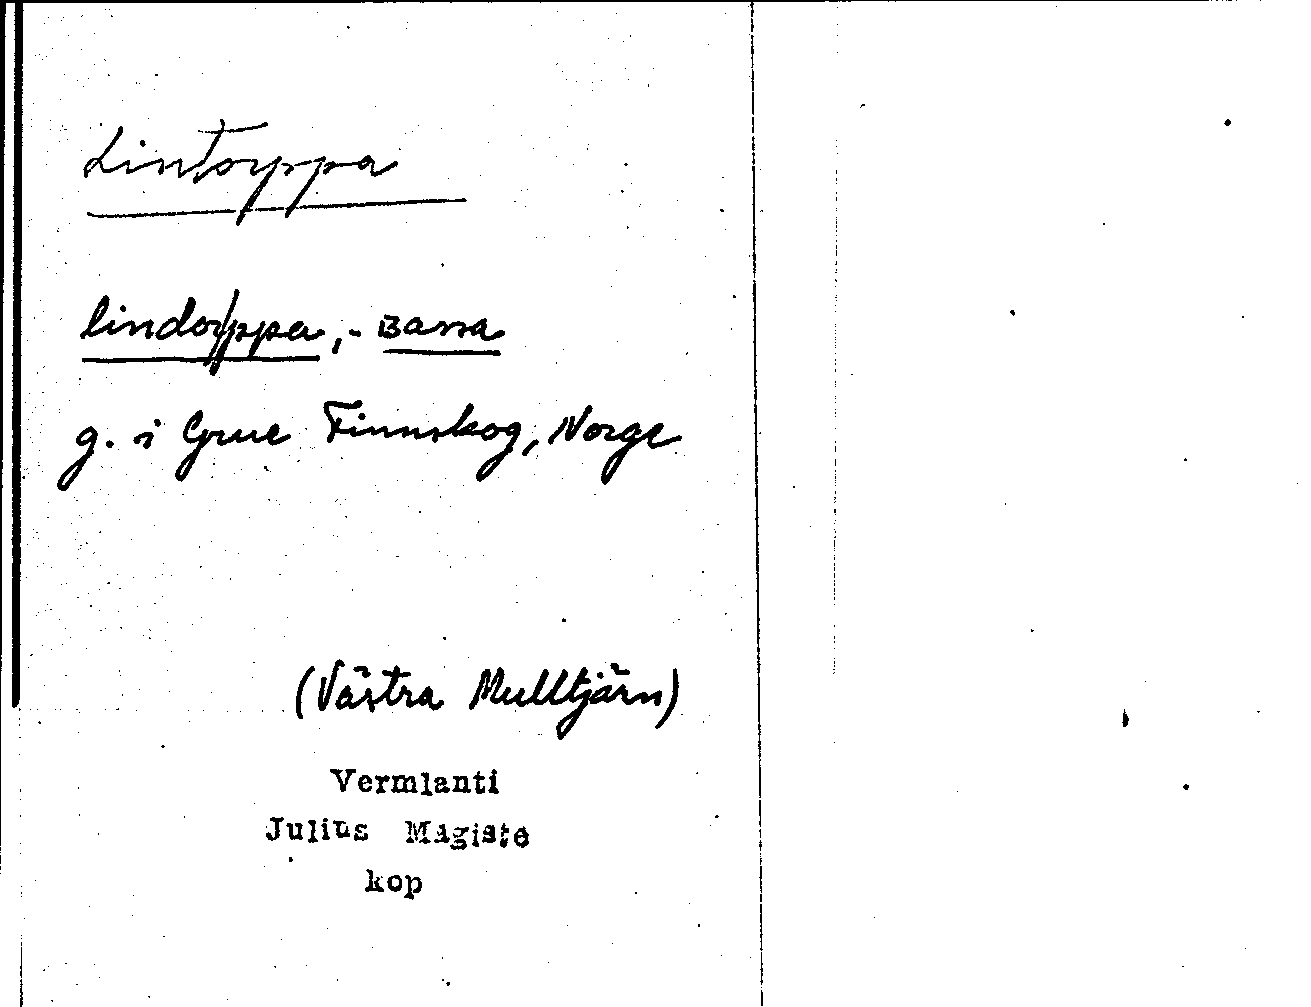 Lintorppa
lindorppa, -ᴃassa
g. i Grue Finnskog, Norge
(Västra Mulltjärn)
Vermlanti
Julius Mägiste
kop